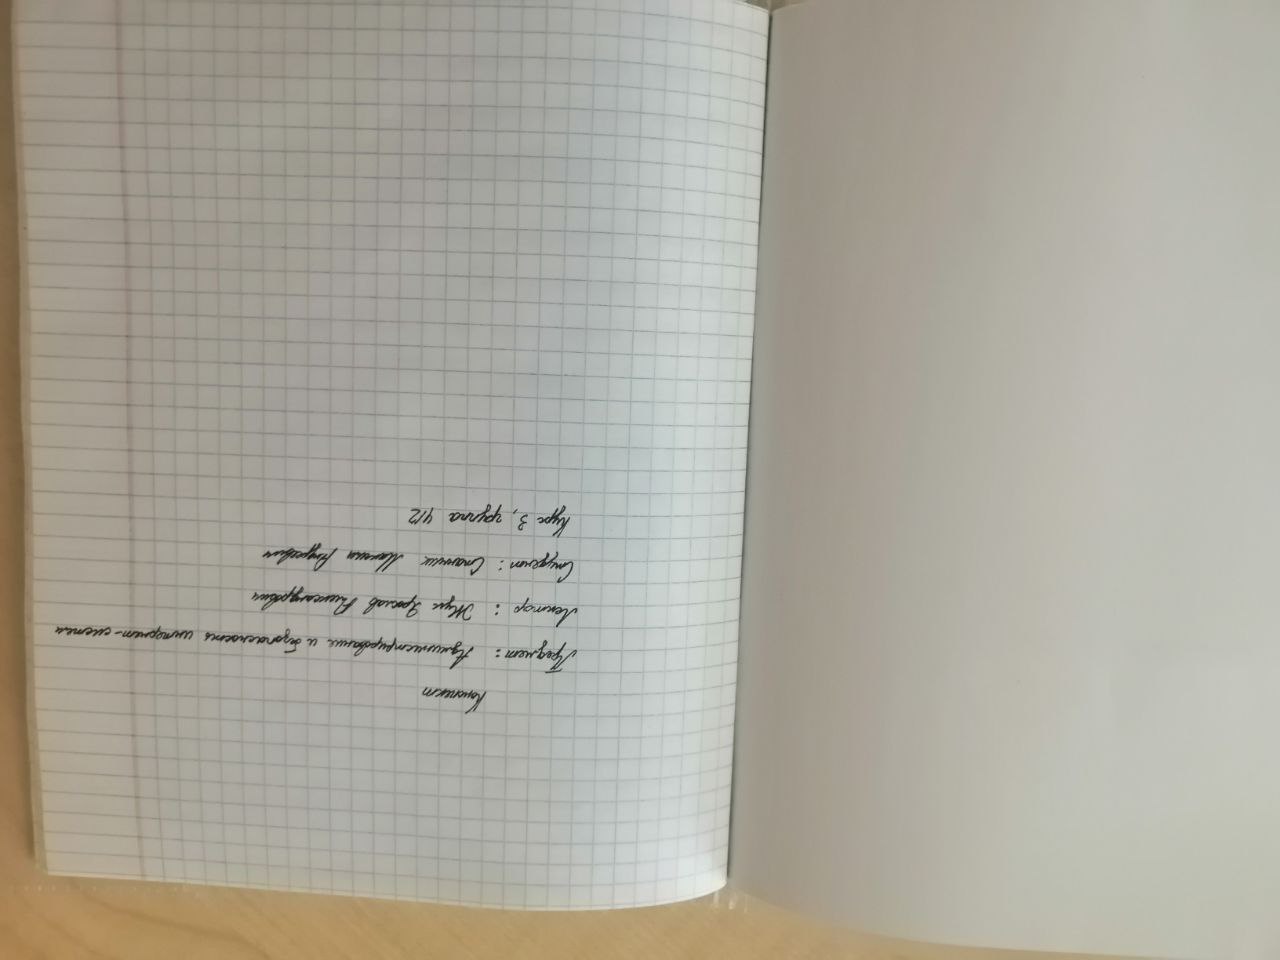 Конспект
Предмет: Администрирование и безопасность интернет-систем
Лектор: Жук Ярослав Александрович
Студент: Станчик Максим Андреевич
Курс 3, группа 412